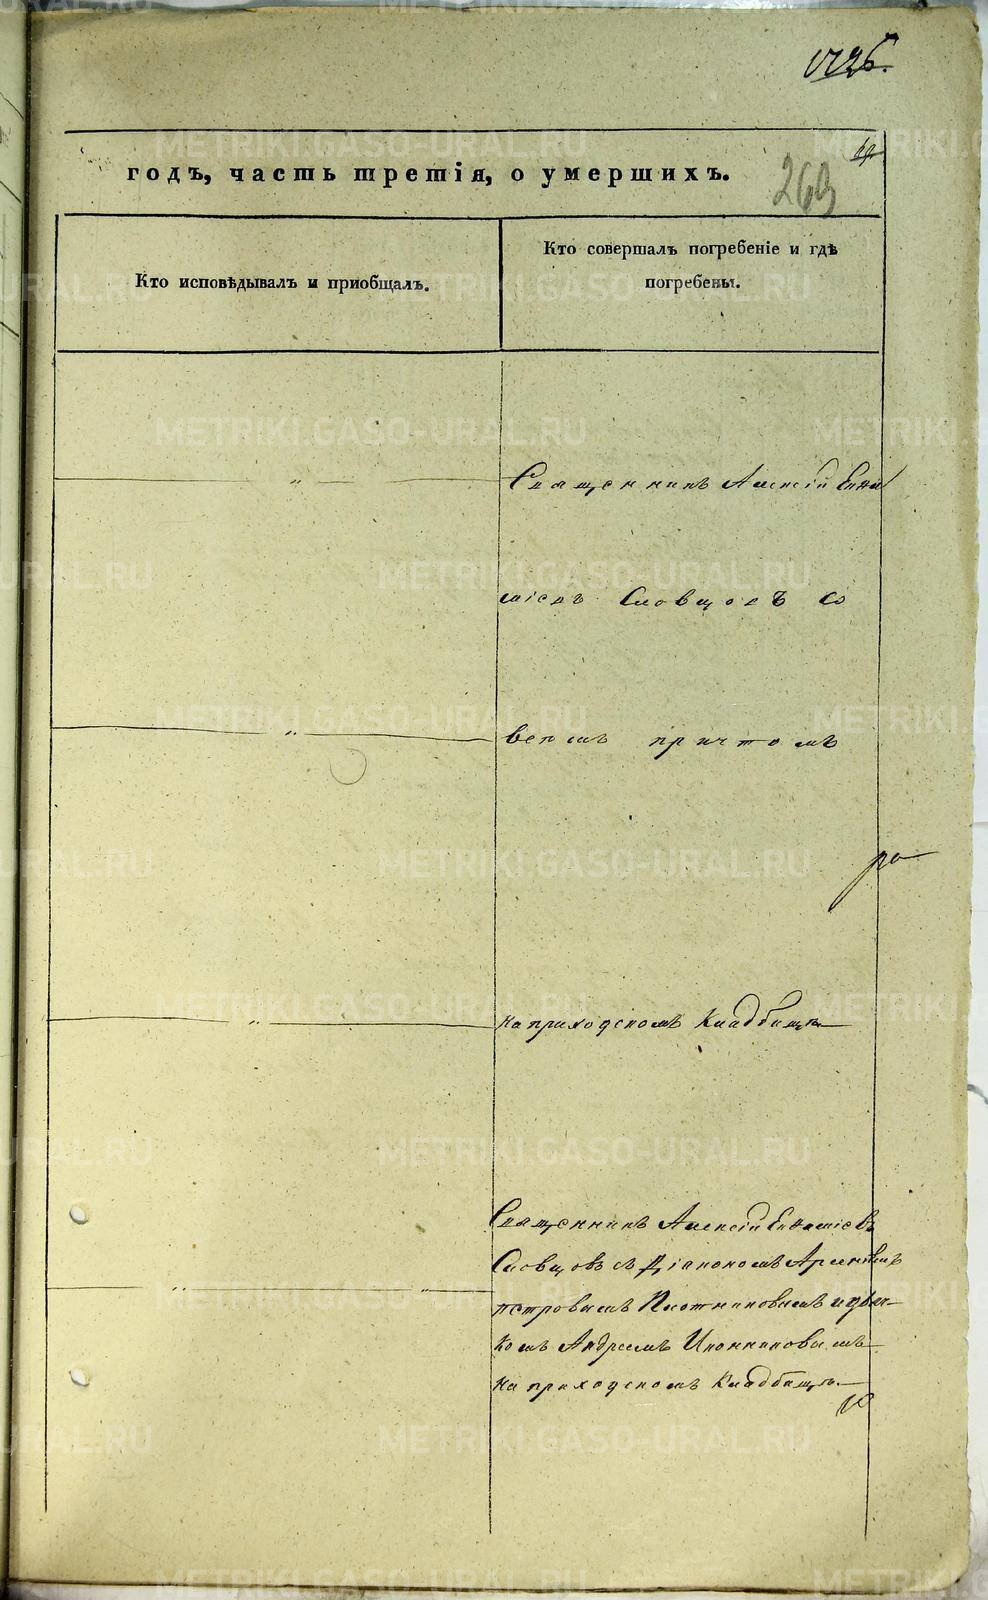 годъ, часть третія, о умершихъ.
269
Кто исповѣдывалъ и пріобщалъ.
Кто совершалъ погребеніе и гдѣ
погребены.
Священникъ Алексій Евѳи
міевъ Словцовъ со
всемъ причтомъ
на приходскомъ кладбищѣ
Священникъ Алексій Евѳиміевъ
Словцовъ съ Діакономъ
Петровымъ Плотниковымъ и дьяч-
комъ Андреемъ Иконниковымъ
на приходскомъ кладбищѣ
METRIKI.GASO-URAL.RU